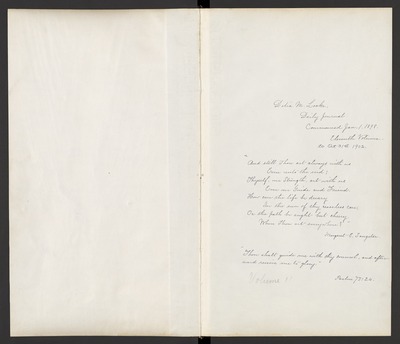 Delia M. Locke.
Daily Journal
Commenced Jan. 1, 1898.
Eleventh Volume
to Oct. 31st 1902
"And still Thou art always with us
Even unto the end;
Thyself our Strength, art with us
Our Guide and Friend
How can the life be dreary
In the sun of thy ceaseless care
Or the path be aught but cheery
When Thou art everywhere?"
Margaret E. Sangster
"Thou shalt guide me with thy counsel, and after-
ward receive me to glory."
Psalm, 73:24.
Volume